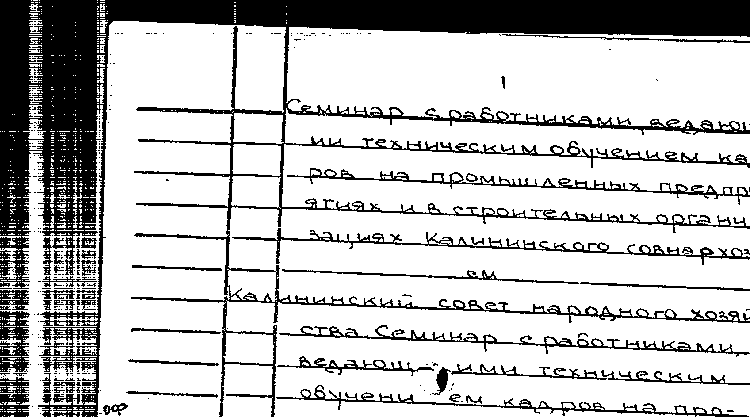 Семинар с работниками, ведающ
ми техническим обучением ка
ров на промышленных предпр
ятиях и в строительных органи
зациях Калининского совнархоз
см
Калининский совет народного хозяй
ства Семинар с работниками,
ведающ ими техническим
обучени ем кадров на про-